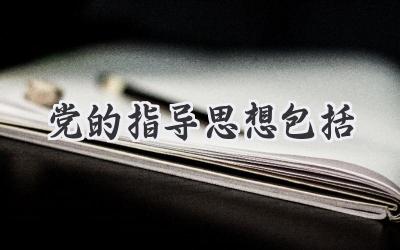 党的指导思想包括